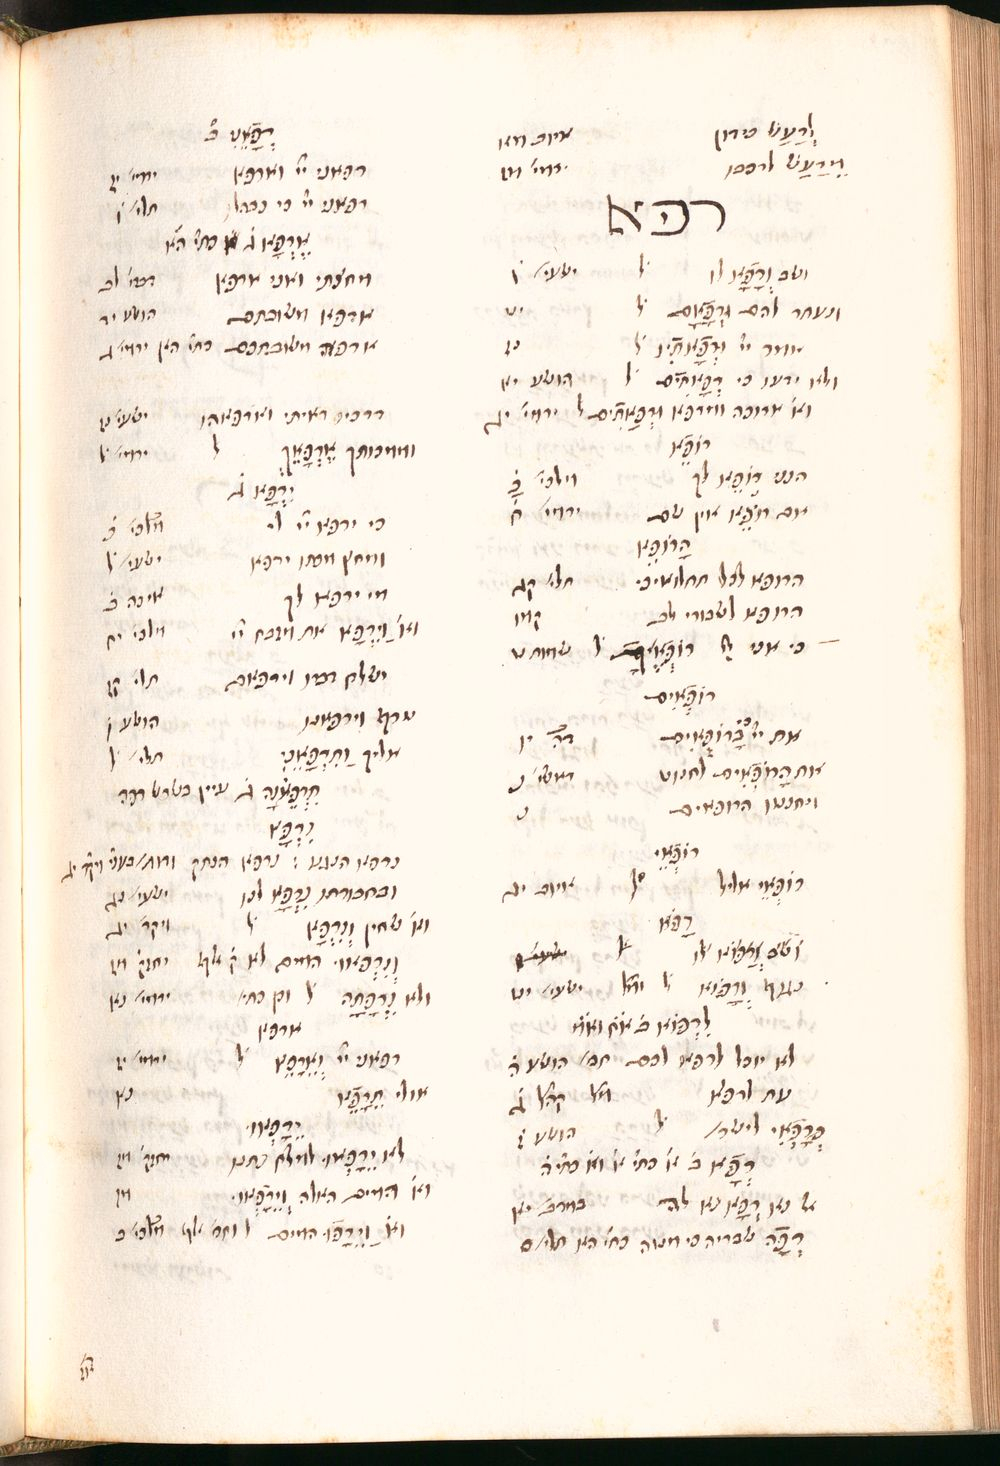 לְרַעַשׁ כידון איוב מא
מֵרַעַשׁ לרכבו ירמי׳ מז
רפא
ושב וְרָפָא לו ל׳ ישעי׳ ו
ונעתר להם וּרְפָאָם ל׳ יט
אמר יי וּרְפָאתִיו ל׳ נז
ולא ידעו כי רְפָאתִים ל׳ הושע יא
וא׳ ארוכה ומרפא וּרְפָאתִים ל׳ ירמי׳ לג
רוֹפֵא
הנני רוֹפֵא לך מלכי׳ ב כ
אם רוֹפֵא אין שם ירמי׳ ח
הָרוֹפֵא
הרופא לכל תחלואיכי תלי׳ קג
הרופא לשבורי לב קמז
כי אני יי רוֹפְאֶךָ ל׳ שמות טו
רוֹפְאִים
את בָּרוֹפְאִים דה׳ יו
את הָרוֹפְאִים לחנוט ראשי׳ נ
ויחנטו הרופאים נ
רוֹפְאֵי
רוֹפְאֵי אליל ל׳ איוב יג
רָפֹא
ושב וְרָפֹא לו ל׳
נגוף וְרָפוֹא ל׳ ישעי׳ יט
לִרְפּוֹא
לא יוכל לרפא לכם הושע ה
עת לרפא קהל׳ ג
כְּרָפְאִי לישר׳ ל׳ הושע ז
רְפָא
אל נא רְפָא נא לה במדב׳ יב
רְפָה שבריה כי מטה כתי׳ הא תלי׳ ס
רְפָאֵנִי ב
רפאני יי וארפא ירמי׳ יז
רפאני יי כי נבהלו תלי׳ ו
אֶרְפָּא ג כתי׳ הא
מחצתי ואני ארפא דברי׳ לב
ארפא משובתם הושע יד
ארפה משובתכם כתי׳ הא ירמי׳ ג
דרכיו ראיתי וארפאהו ישעי׳ נז
וממכותיך אֶרְפָּאֵךְ ל׳ ירמי׳ ל
יִרְפָּא ג
כי ירפא יי לי מלכי׳ ב כ
ומחץ מכתו ירפא ישעי׳ ל
מי ירפא לך איכה ב
וא׳ וַיִּרְפָּא את מזבח יי מלכי׳ יח
ישלח דברו וירפאם תלי׳ קז
טרף וירפאנו הושע ו
אליך וַתִּרְפָּאֵנִי תלי׳ ל
תִּרְפֶּאנָה ג עיין בשרש רפה
נִרְפָּא
נרפא הנגע : נרפא הנתק ויקר׳ יג
ובחבורתו נִרְפָּא לנו ישעי׳ נג
וא׳ שחין וְנִרְפָּא ל׳ ויקר׳ יג
וְנִרְפְּאוּ המים לא ק׳ אלף יחזק׳ מז
ולא נִרְפָּתָה ל׳ וק׳ כתי׳ ירמי׳ נא
ארפא
רפאני יי וְאֵרָפֵא ל׳ ירמי׳ יז
אולי תֵּרָפֵא נא
יֵרָפְאוּ
לא יֵרָפְאוּ למלח נתנו יחזק׳ מז
וא׳ המים האלה וְיֵרָפְאוּ מז
וא׳ וַיֵּרָפוּ המים ל׳ וחס׳ אלף מלכי׳ ב